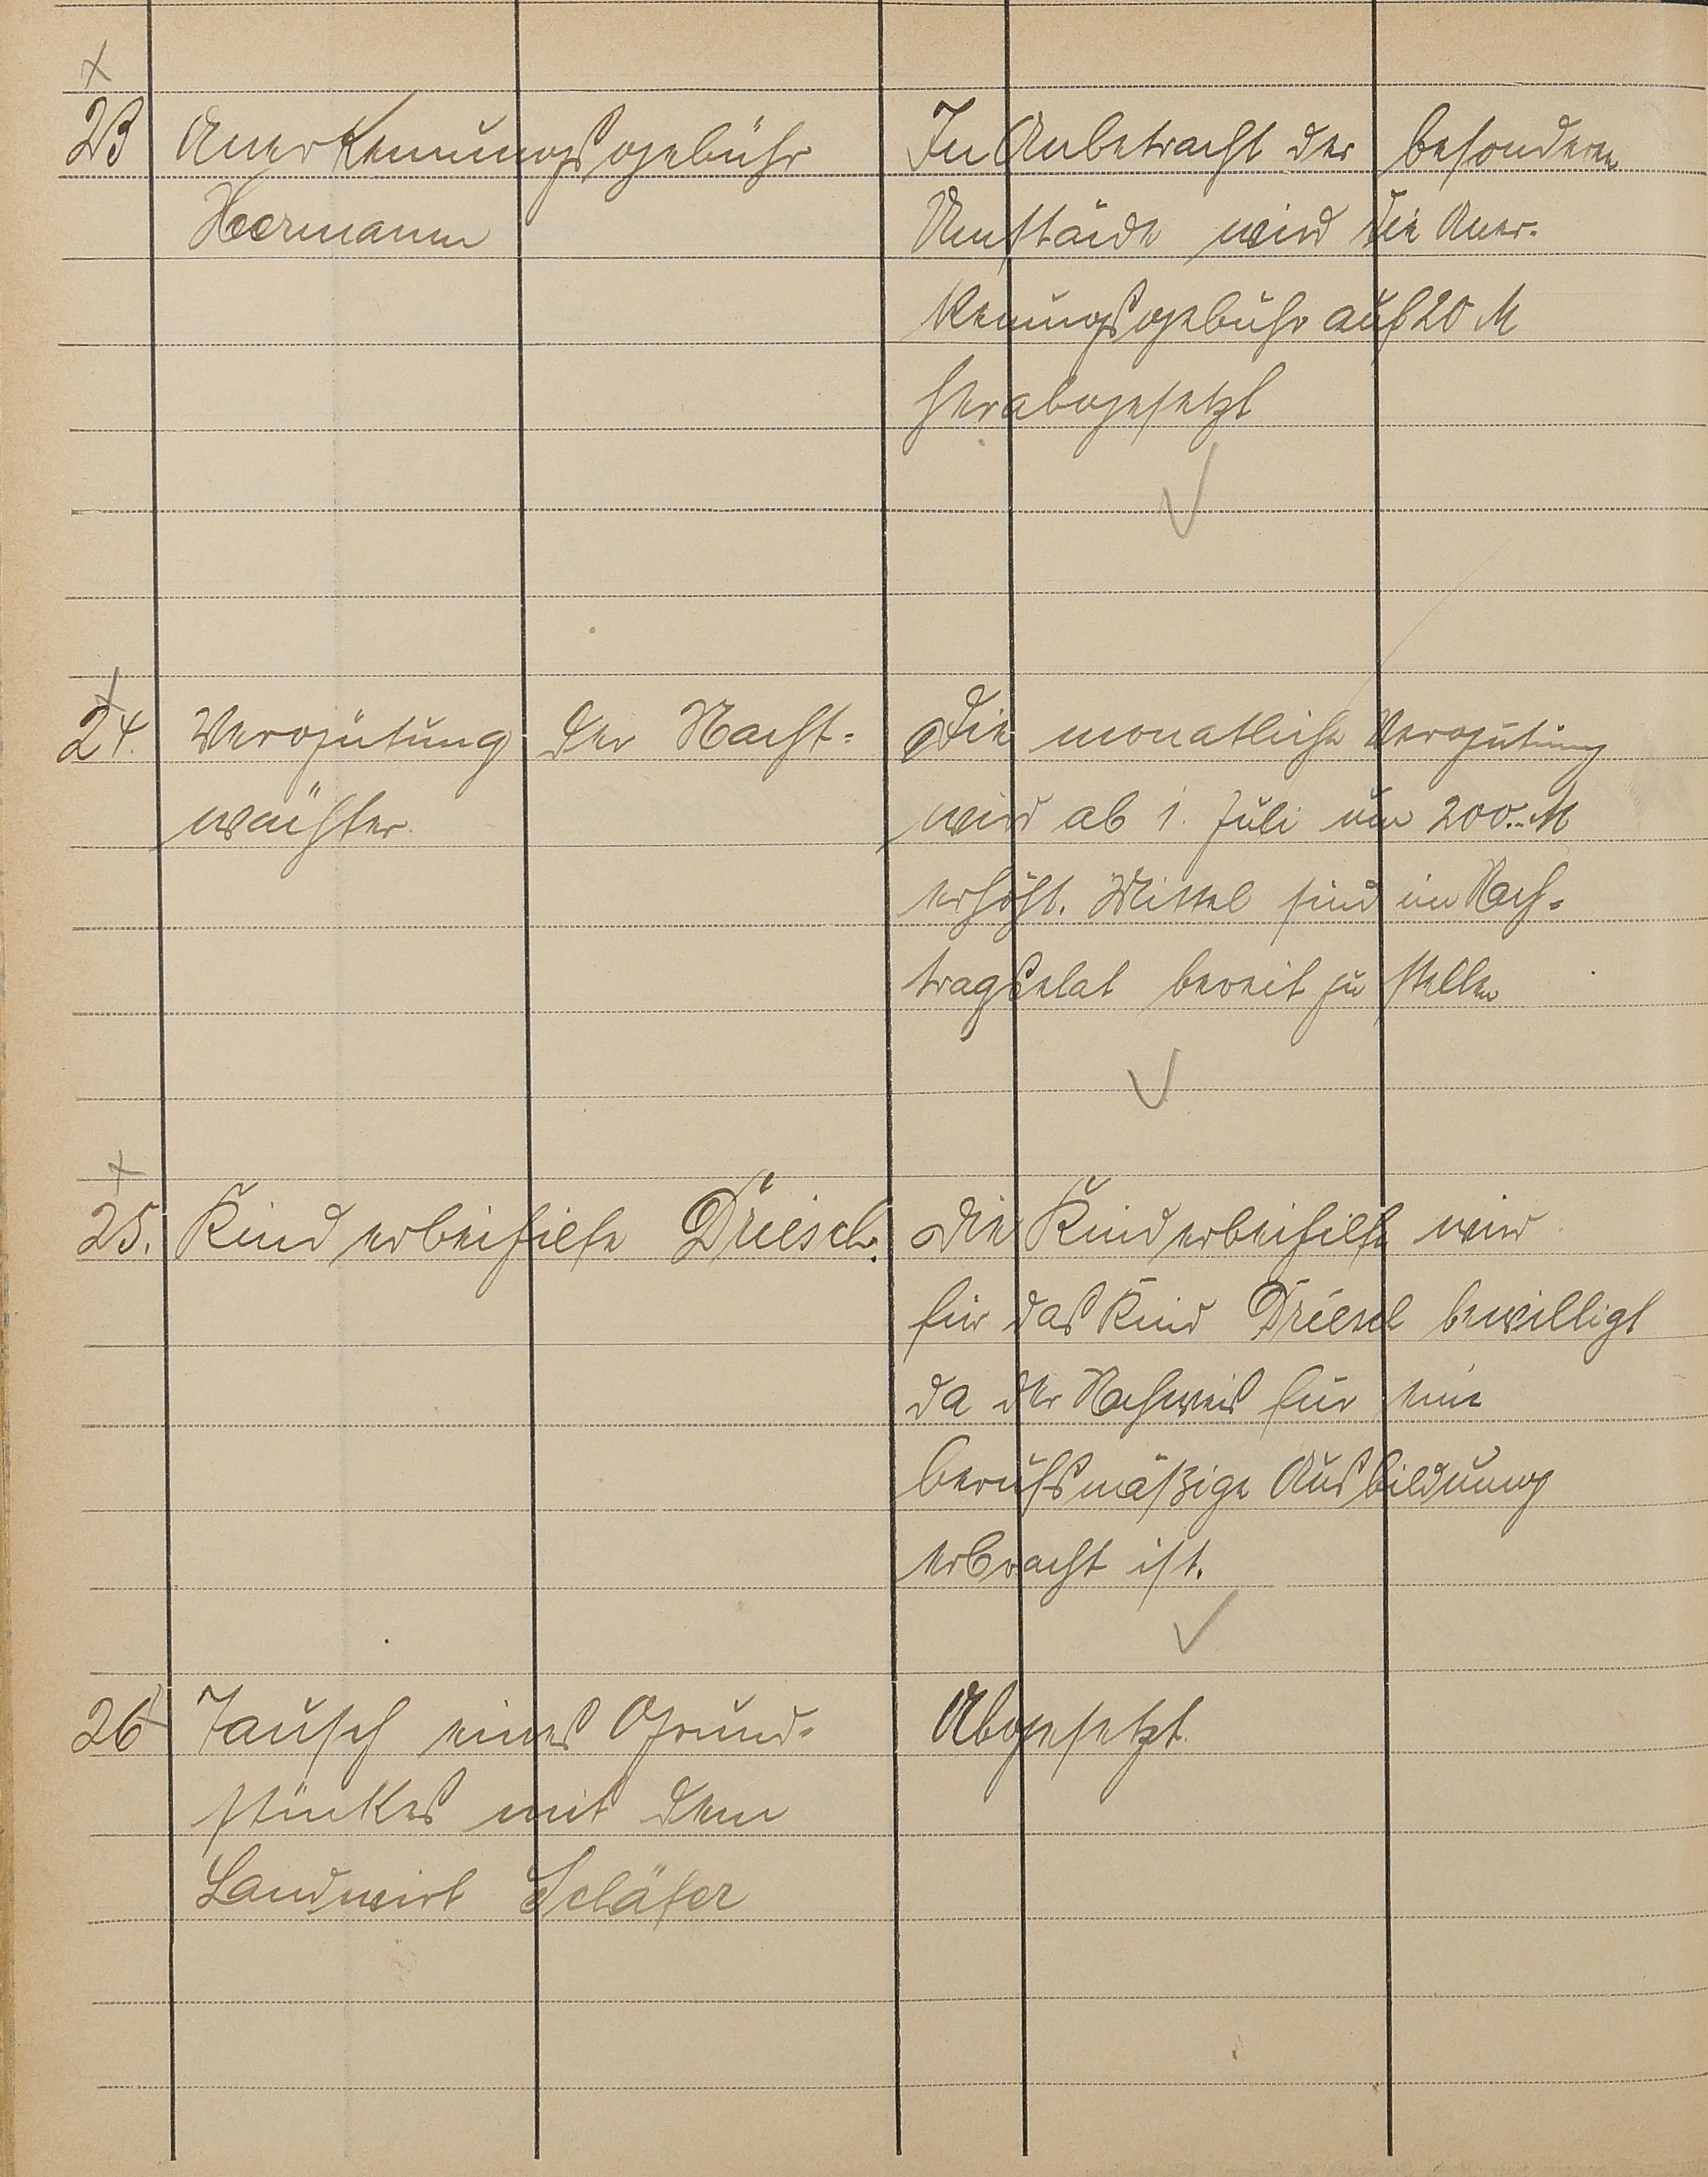 23 Anerkennungsgebühr
Heermann
In Anbetracht der besonderen
Umstände wird die Aner-
kennungsgebühr auf 20 M
herabgesetzt
24. Vergütung der Nacht-
wächter.
Die monatliche Vergütung
wird ab 1. Juli um 200.- M
erhöht. Mittel sind im Nach-
tragsetat bereit zu stellen
25. Kinderbeihilfe Driesch.
Die Kinderbeihilfe wird
für das Kind Driesch bewilligt
da der Nachweis für eine
berufsmäßige Ausbildung
erbracht ist.
26 Tausch eines Grund-
stückes mit dem
Landwirt Schäfer
Abgesetzt.